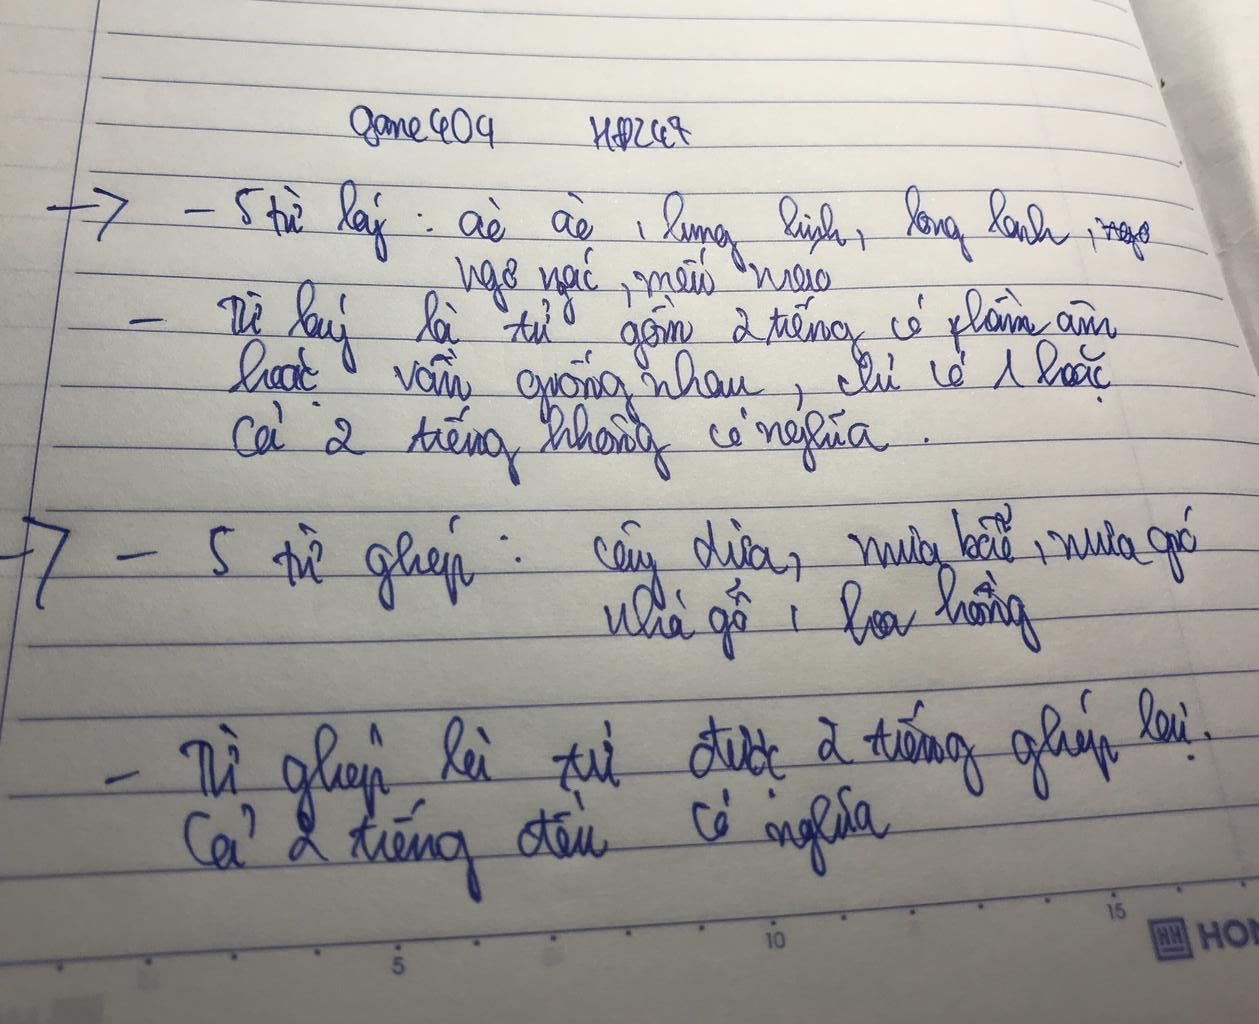 game404 HĐ247
- 5 từ láy : ào ào, lung linh, long lanh,
ngơ ngác, mếu máo
- Từ láy là từ gồm 2 tiếng có phần âm
hoặc vần giống nhau, chỉ có 1 hoặc
cả 2 tiếng không có nghĩa.
- 5 từ ghép : cây dừa, mưa bão, mưa gió
nhà gỗ, hoa hồng
- Từ ghép là từ được 2 tiếng ghép lại.
Cả 2 tiếng đều có nghĩa
5 10 15
HON